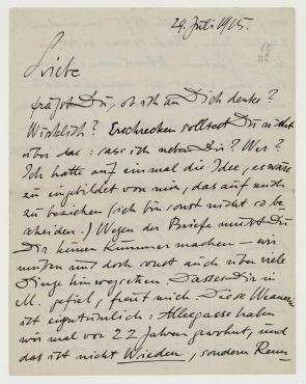 29. Juli 1915.
Liebe
frägst Du, ob ich an Dich denke?
Wirklich? Erschrecken solltest Du nicht
über das: saß ich neben Dir? Wer?
Ich hatte auf einmal die Idee, es wäre
zu eingebildet von mir, das auf mich
zu beziehen (ich bin sonst nicht so be-
scheiden.) Wegen der Briefe mußt Du
Dir keinen Kummer machen – wir
müssen uns doch sonst auch über viele
Dinge hinwegsetzen. Dass es Dir in
M. gefiel, freut mich. Diese
ist eigentümlich: Alleegasse haben
wir mal vor 22 Jahren gewohnt, und
das ist nicht Wieden, sondern Renn-